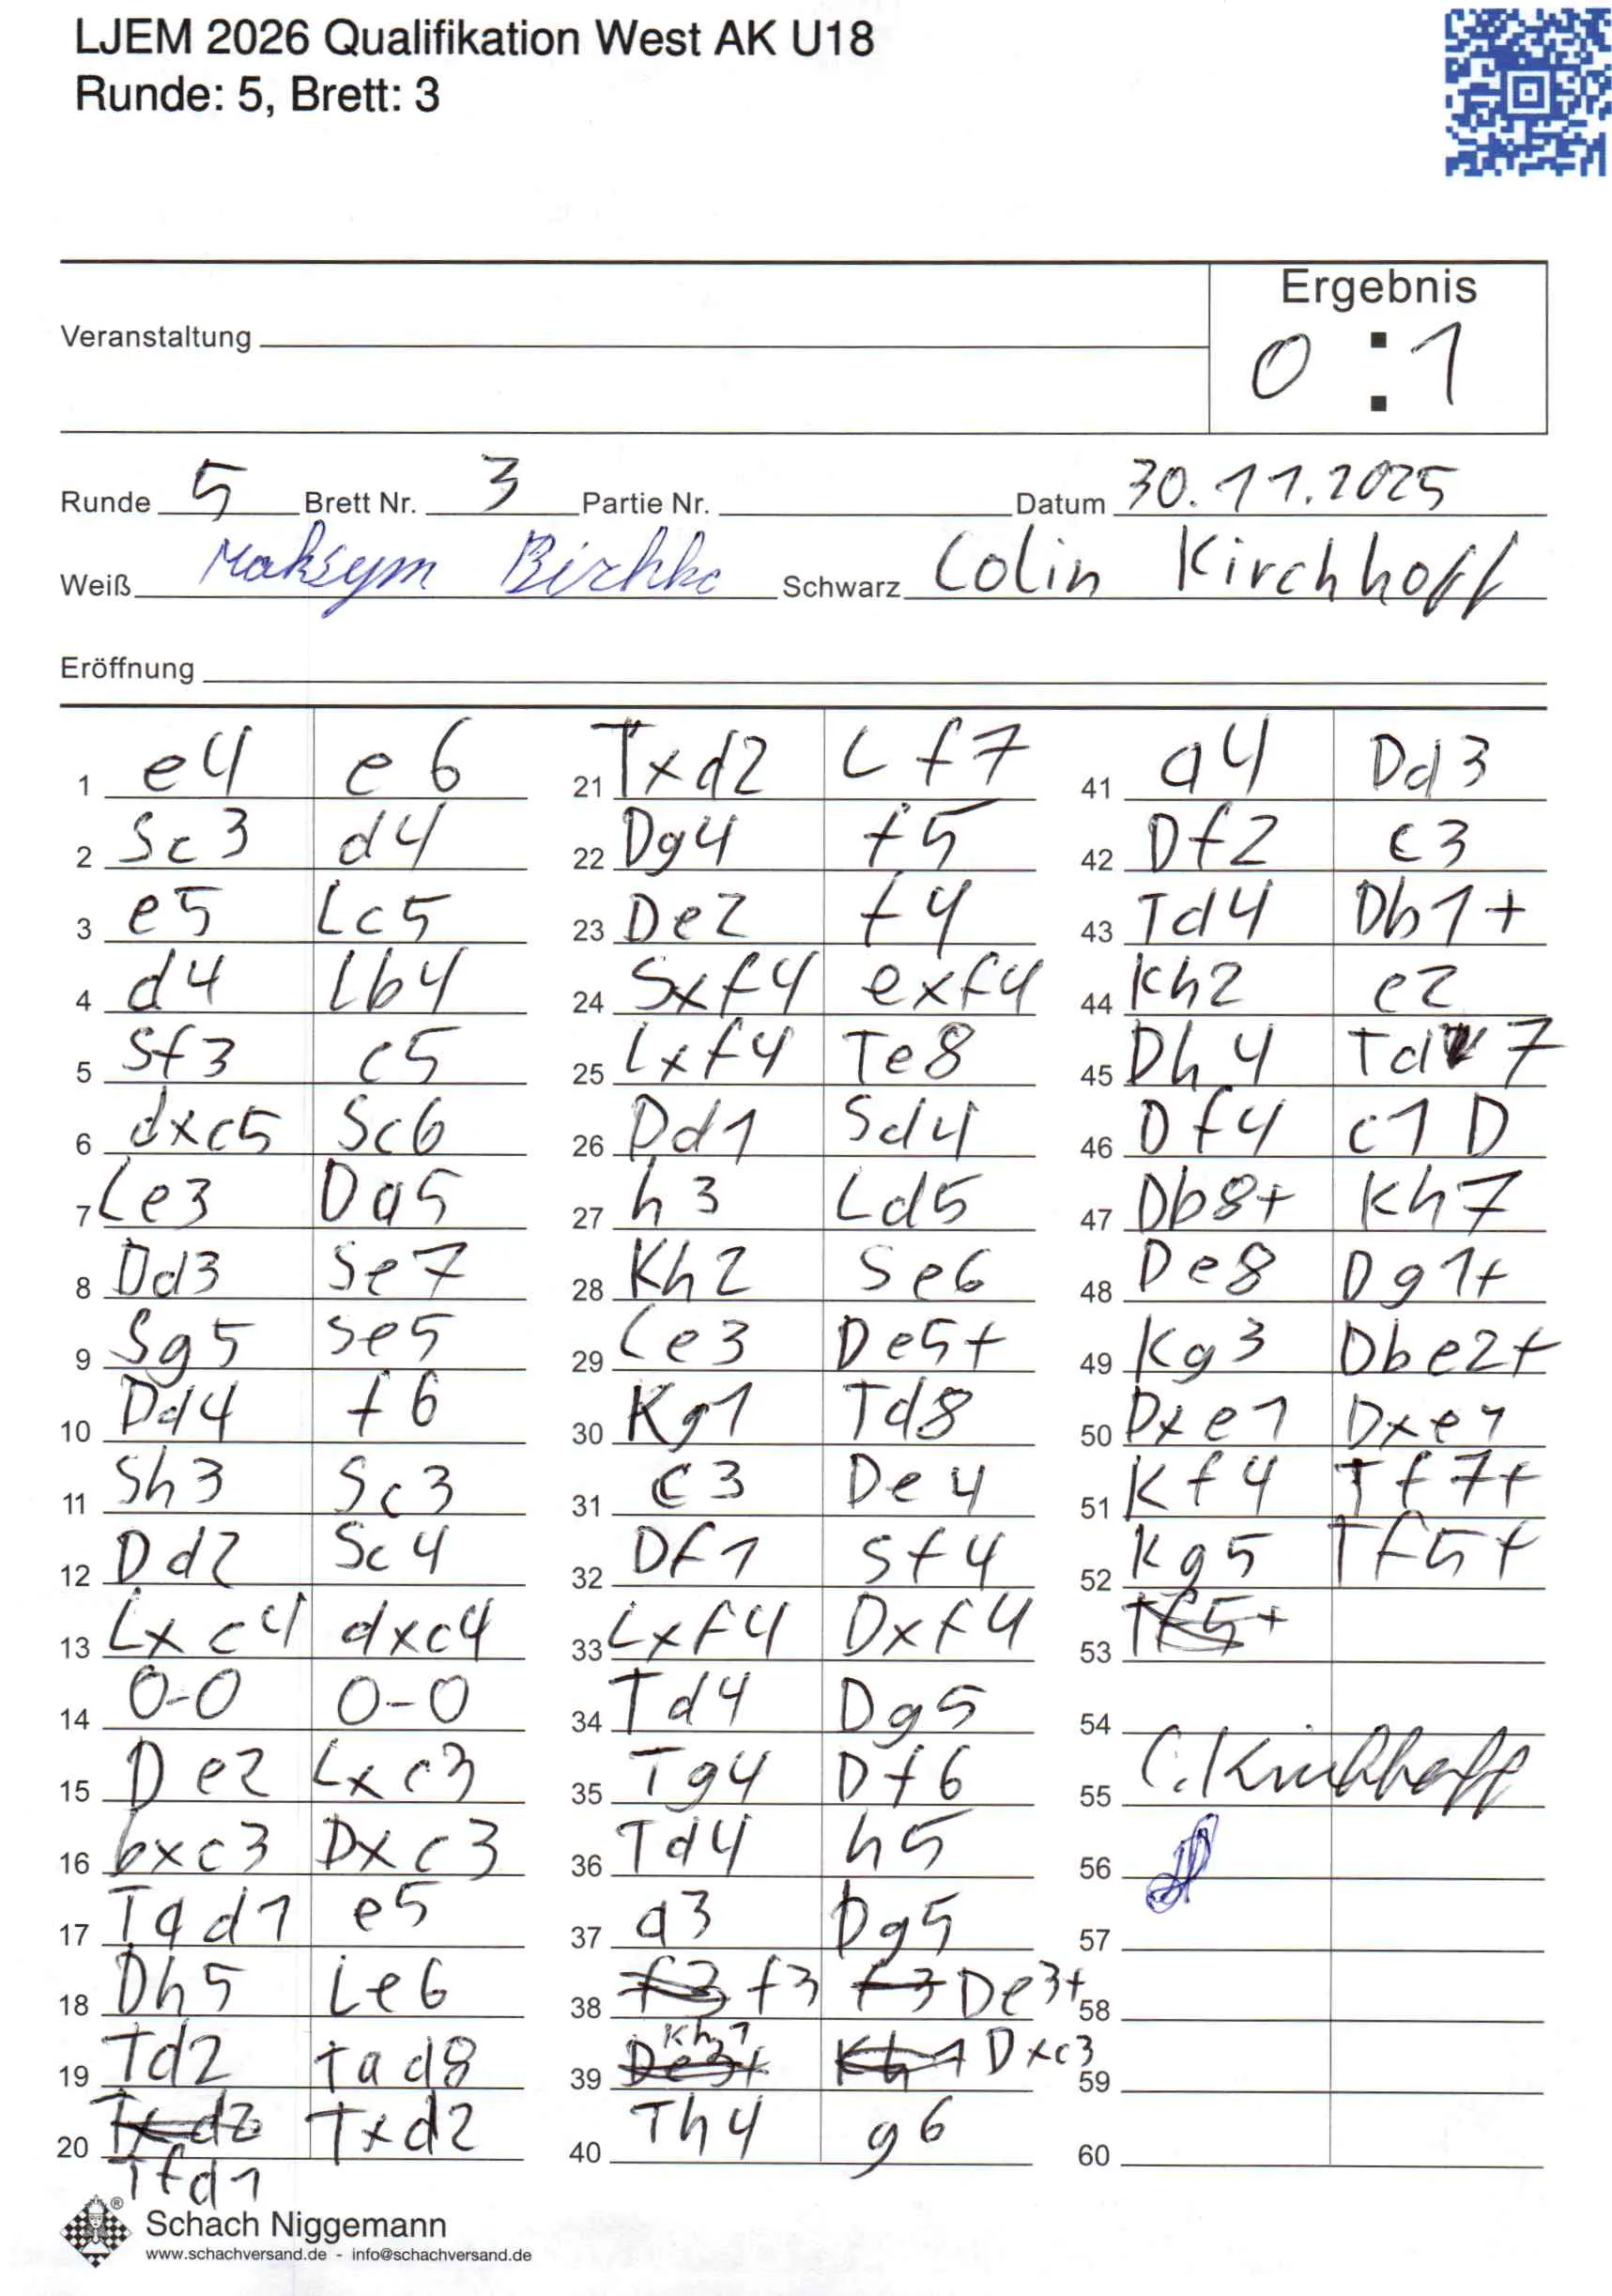 LJEM 2026 Qualifikation West AK U18
Runde: 5, Brett: 3
Ergebnis
Veranstaltung
0 : 1
Runde 5 Brett Nr. 3 Partie Nr. Datum 30.11.2025
Weiß Maksym Schwarz Colin Kirchhoff
Eröffnung
1 e4 e6 21 Txd2 Lf7 41 a4 Dd3
2 Sc3 d4 22 Dg4 f5 42 Df2 c3
3 e5 Lc5 23 De2 f4 43 Td4 Db1+
4 d4 Lb4 24 Sxf4 exf4 44 Kh2 c2
5 Sf3 c5 25 Lxf4 Te8 45 Dh4 Td7
6 dxc5 Sc6 26 Dd1 Sd4 46 Df4 c1D
7 Le3 Da5 27 h3 Ld5 47 Db8+ Kh7
8 Dd3 Se7 28 Kh2 Se6 48 De8 Dg1+
9 Sg5 Se5 29 Le3 De5+ 49 Kg3 Dbe2+
10 Dd4 f6 30 Kg1 Td8 50 Dxe1 Dxe1
11 Sh3 Sc3 31 c3 De4 51 Kf4 Tf7+
12 Dd2 Sc4 32 Df1 Sf4 52 Kg5 Tf5+
13 Lxc4 dxc4 33 Lxf4 Dxf4 53 Tf5+
14 0-0 0-0 34 Td4 Dg5 54
15 De2 Lxc3 35 Tg4 Df6 55 C. Kirchhoff
16 bxc3 Dxc3 36 Td4 h5 56
17 Tad1 e5 37 a3 Dg5 57
18 Dh5 Le6 38 f3 f3 f3 De3+ 58
19 Td2 tad8 39 De3+ Kh1 Kh1 Dxc3 59
20 Txd2 Txd2 40 Th4 g6 60
Tfd1
Schach Niggemann
www.schachversand.de - info@schachversand.de